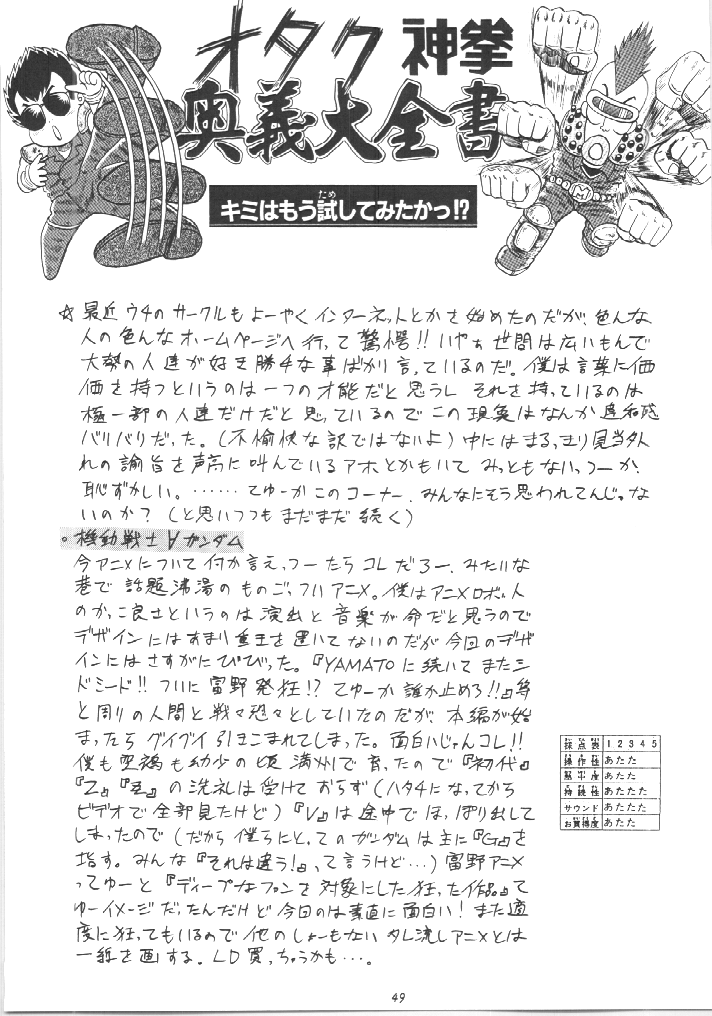 オタク神拳
奥義大全書
キミはもう試してみたかっ!?
ため
☆最近ウチのサークルもよーやくインターネットとかさ始めたのだが、色んな
人の色んなホームページへ行って驚愕!! いやぁ世間は広いもんで
大勢の人達が好き勝手な事ばかり言っているのだ。僕は言葉に価
価を持つというのは一つの才能だと思うし それを持っているのは
極一部の人達だけだと思っているのでこの現実はなんか違和感
バリバリだった。(不愉快な訳ではないよ)中にはまるっきり見当外
れの論旨を声高に叫んでいるアホとかもいて みっともないっつーか、
恥ずかしい。……てゆーかこのコーナー、みんなにそう思われてんじゃな
いのか?(と思いつつもまだまだ続く)
・機動戦士∀ガンダム
今アニメについて何か言えっつーたらコレだろー、みたいな
巷で話題沸湯のものごっついアニメ。僕はアニメロボット
のかっこ良さというのは演出と音楽が命だと思うので
デザインにはあまり重王を置いてないのだが今回のデザ
インにはさすがにびびった。『YAMATOに続いてまたシ
ドミード!! ついに富野発狂!? てゆーか誰か止めろ!!』等
と周りの人間と戦々恐々としていたのだが、本編が始
まったらグイグイ引きこまれてしまった。面白いじゃんコレ!!
僕も 幼少の頃満州で育ったので『初代』
『Z』『ZZ』の洗礼は受けておらず(ハタチになってから
ビデオで全部見たけど)『V』は途中でほっぽり出して
しまったので(だから僕らにとってのガンダムは主に『G』を
指す。みんな『それは違う!』って言うけど…)富野アニメ
ってゆーと『ディープなファンを対象にした狂った作品』て
ゆーイメージだったんだけど今回のは素直に面白い!また適
度に狂ってもいるので他のしょーもないタレ流しアニメとは
一線を画する。LD買っちゃうかも…。
採点表 1 2 3 4 5
操作性 あたた
熱中度 あたたた
持続性 あたたたた
サウンド あたたた
お買得度 あたた
49